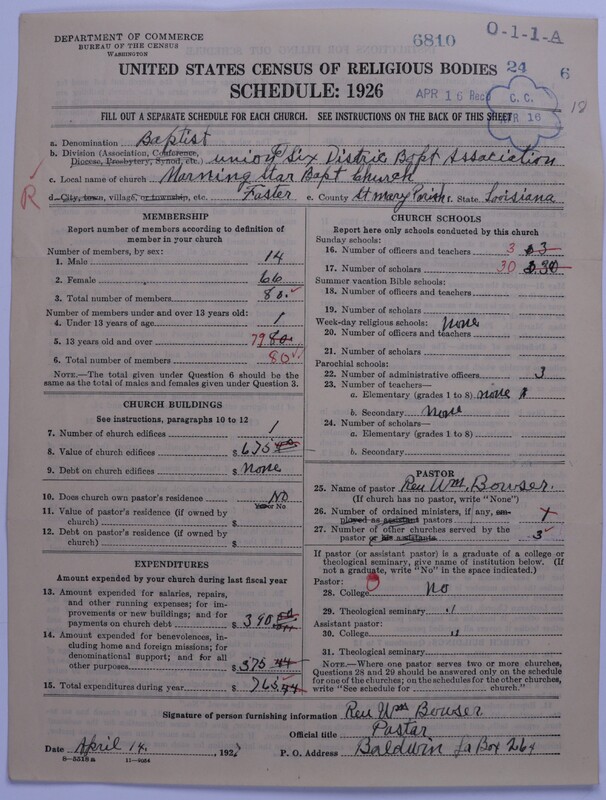 DEPARTMENT OF COMMERCE
BUREAU OF THE CENSUS
WASHINGTON
6810
O-1-1-A
UNITED STATES CENSUS OF RELIGIOUS BODIES
24
6
SCHEDULE: 1926
APR 16 Rec'd
C. C.
APR 16
FILL OUT A SEPARATE SCHEDULE FOR EACH CHURCH. SEE INSTRUCTIONS ON THE BACK OF THIS SHEET
a. Denomination Baptist
b. Division (Association, Conference, Diocese, Presbytery, Synod, etc.) union Six Distric Bapt Association
c. Local name of church Morning Star Bapt Church
R
d. City, town, village, or township, etc. Foster e. County St mary Parish f. State Louisiana
MEMBERSHIP
Report number of members according to definition of
member in your church
Number of members, by sex:
1. Male 14
2. Female 66
3. Total number of members 80
Number of members under and over 13 years old:
4. Under 13 years of age 1
5. 13 years old and over 79 80
6. Total number of members 80
NOTE.—The total given under Question 6 should be
the same as the total of males and females given under Question 3.
CHURCH BUILDINGS
See instructions, paragraphs 10 to 12
7. Number of church edifices 1
8. Value of church edifices $ 675
9. Debt on church edifices $ none
10. Does church own pastor's residence NO
Yes or No
11. Value of pastor's residence (if owned by
church) $
12. Debt on pastor's residence (if owned by
church) $
EXPENDITURES
Amount expended by your church during last fiscal year
13. Amount expended for salaries, repairs,
and other running expenses; for im-
provements or new buildings; and for
payments on church debt $ 390
14. Amount expended for benevolences, in-
cluding home and foreign missions; for
denominational support; and for all
other purposes $ 375.44
15. Total expenditures during year $ 765
CHURCH SCHOOLS
Report here only schools conducted by this church
Sunday schools:
16. Number of officers and teachers 3 3
17. Number of scholars 30 30
Summer vacation Bible schools:
18. Number of officers and teachers
19. Number of scholars
Week-day religious schools: none
20. Number of officers and teachers
21. Number of scholars
Parochial schools:
22. Number of administrative officers 3
23. Number of teachers—
a. Elementary (grades 1 to 8) none
b. Secondary none
24. Number of scholars—
a. Elementary (grades 1 to 8)
b. Secondary
PASTOR
25. Name of pastor Rev Wm. Bowser.
(If church has no pastor, write "None")
26. Number of ordained ministers, if any, em-
ployed as assistant pastors
27. Number of other churches served by the
pastor or his assistants 3
If pastor (or assistant pastor) is a graduate of a college or
theological seminary, give name of institution below. (If
not a graduate, write "No" in the space indicated.)
Pastor:
28. College No
29. Theological seminary "
Assistant pastor:
30. College "
31. Theological seminary
NOTE.—Where one pastor serves two or more churches,
Questions 28 and 29 should be answered only on the schedule
for one of the churches; on the schedules for the other churches,
write "See schedule for church."
Signature of person furnishing information Rev Wm Bowser
Official title Pastar
Date April 14, 192 P. O. Address Baldwin La Box 264
8-5518a 11-8024